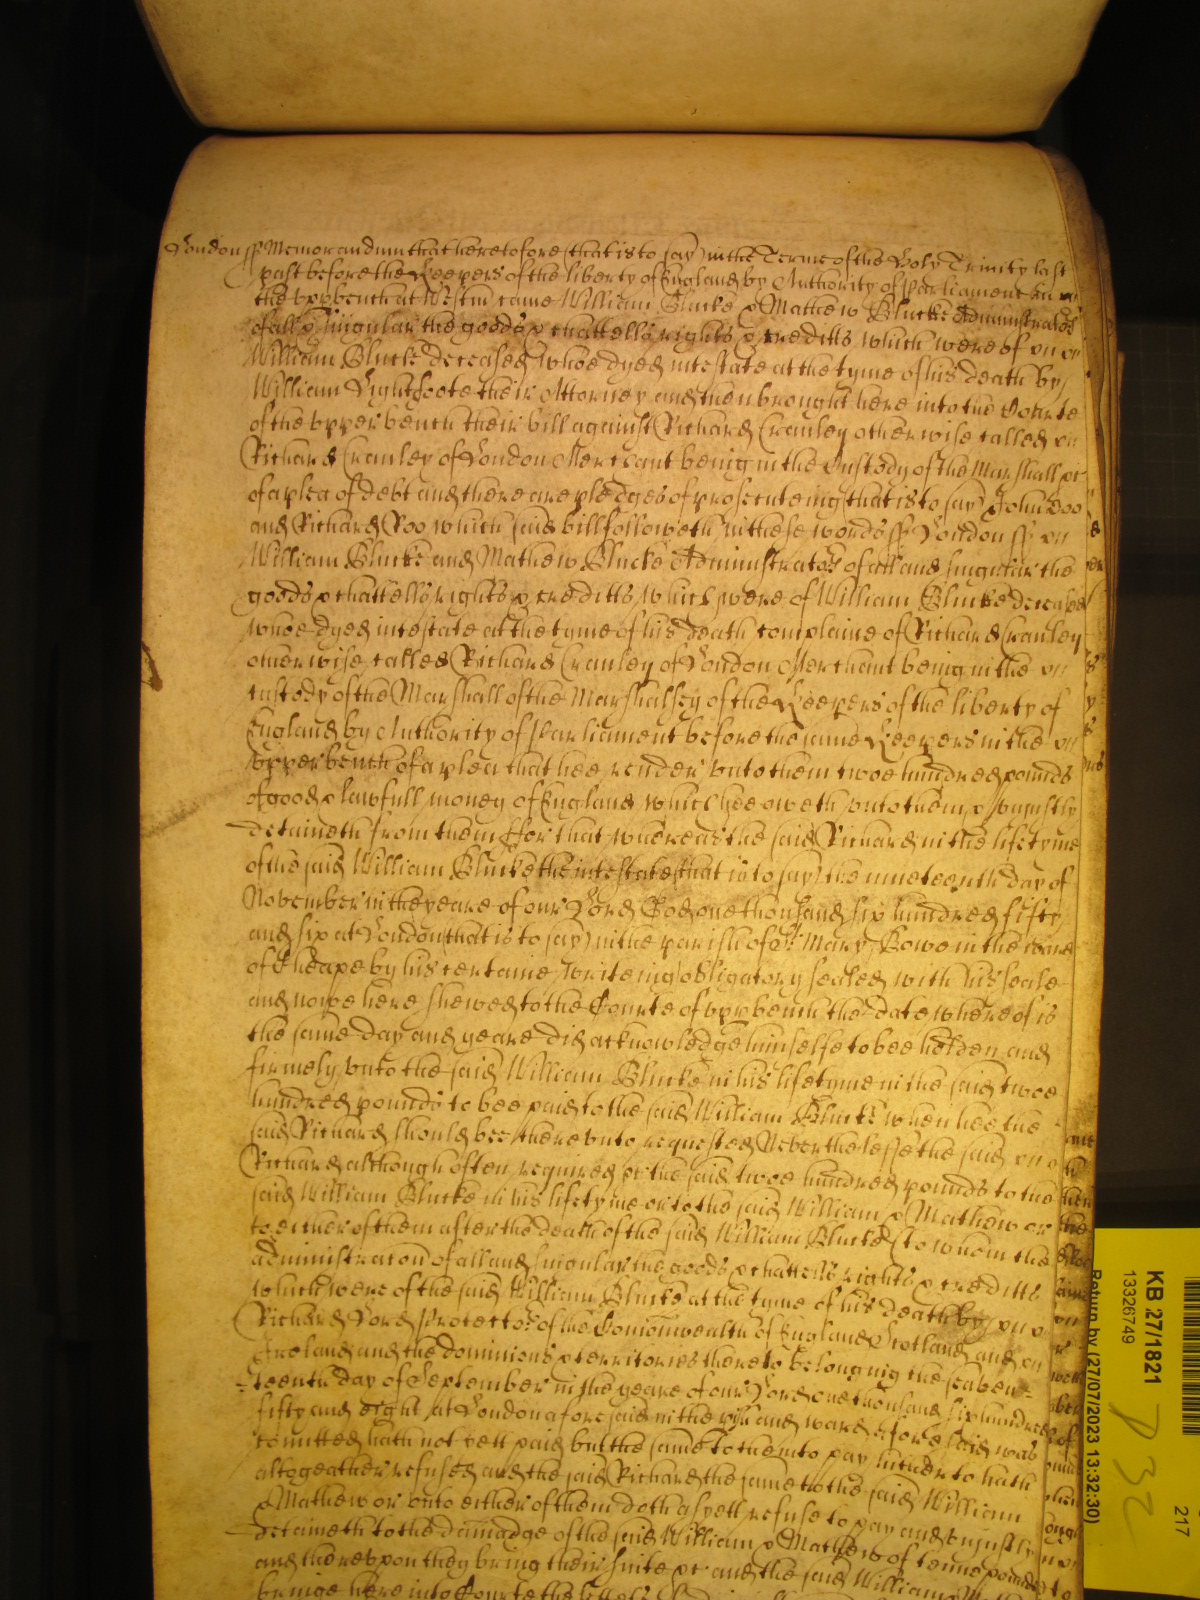 London ss Memorandum that heretofore (that is to say) in the Terme of the Holy Trinity last
past before the Keepers of the liberty of England by Authority of Parliament in
the upp bench at Westm came William Blucke & Mathew Blucke Administrators
of all & singular the goods & chattells rights & creditts which were of
William Blucke deceased whoe dyed intestate at the tyme of his death by
William Lightfoote their Attorney and then brought here into the Courte
of the upper bench their bill against Richard Cranley otherwise called
Richard Cranley of London Merchant being in the Custody of the Marshall &c
of a plea of debt and there are pledges of prosecuteing that is to say John Doo
and Richard Roo which said bill followeth in these words ss London ss
William Blucke and Mathew Blucke Administrators of all and singular the
goods & chattells rights & creditts which were of William Blucke deceased
whoe dyed intestate at the tyme of his death complaine of Richard Cranley
otherwise called Richard Cranley of London Merchant being in the
custody of the Marshall of the Marshalsey of the Keepers of the liberty of
England by Authority of Parliament before the same Keepers in the
upper bench of a plea that hee render unto them twoe hundred pounds
of good & lawfull money of England which hee oweth unto them & unjustly
detaineth from them for that whereas the said Richard in the lifetyme
of the said William Blucke the intestate (that is to say) the nineteenth day of
November in the yeare of our Lord God one thousand six hundred fifty
and six at London (that is to say) in the parish of St Mary Bowe in the ward
of Cheape by his certaine writeing obligatory sealed with his seale
and nowe here shewed to the Courte of upp bench the date whereof is
the same day and yeare did acknowledge himselfe to bee holden and
firmely unto the said William Blucke in his lifetyme in the said twoe
hundred pounds to bee paid to the said William Blucke when hee the
said Richard should bee thereunto requested Neverthelesse the said
Richard although often required &c the said twoe hundred pounds to the
said William Blucke in his lifetyme or to the said William & Mathew or
to either of them after the death of the said William Blucke (to whom the
administracon of all and singular the goods & chattells rights & creditts
which were of the said William Blucke at the tyme of his death by
Richard Lord Protector of the Comonwealth of England Scotland and
Ireland and the dominions & territories thereto belonging the seaven=
=teenth day of September in the yeare of our Lord one thousand six hundred
fifty and eight at London aforesaid in the pish and ward aforesaid was
comitted hath not yett paid but the same to them to pay hitherto hath
altogeather refused and the said Richard the same to the said William
& Mathew or unto either of them doth as yett refuse to pay and unjustly
detaineth to the damadge of the said William & Mathew of tenne pounds
and thereupon they bring their suite &c and the said William & Mathew
bringe here into Courte the letters
KB 27/1821
13326749
217
Return by (27/07/2023 13:32:30)
D32